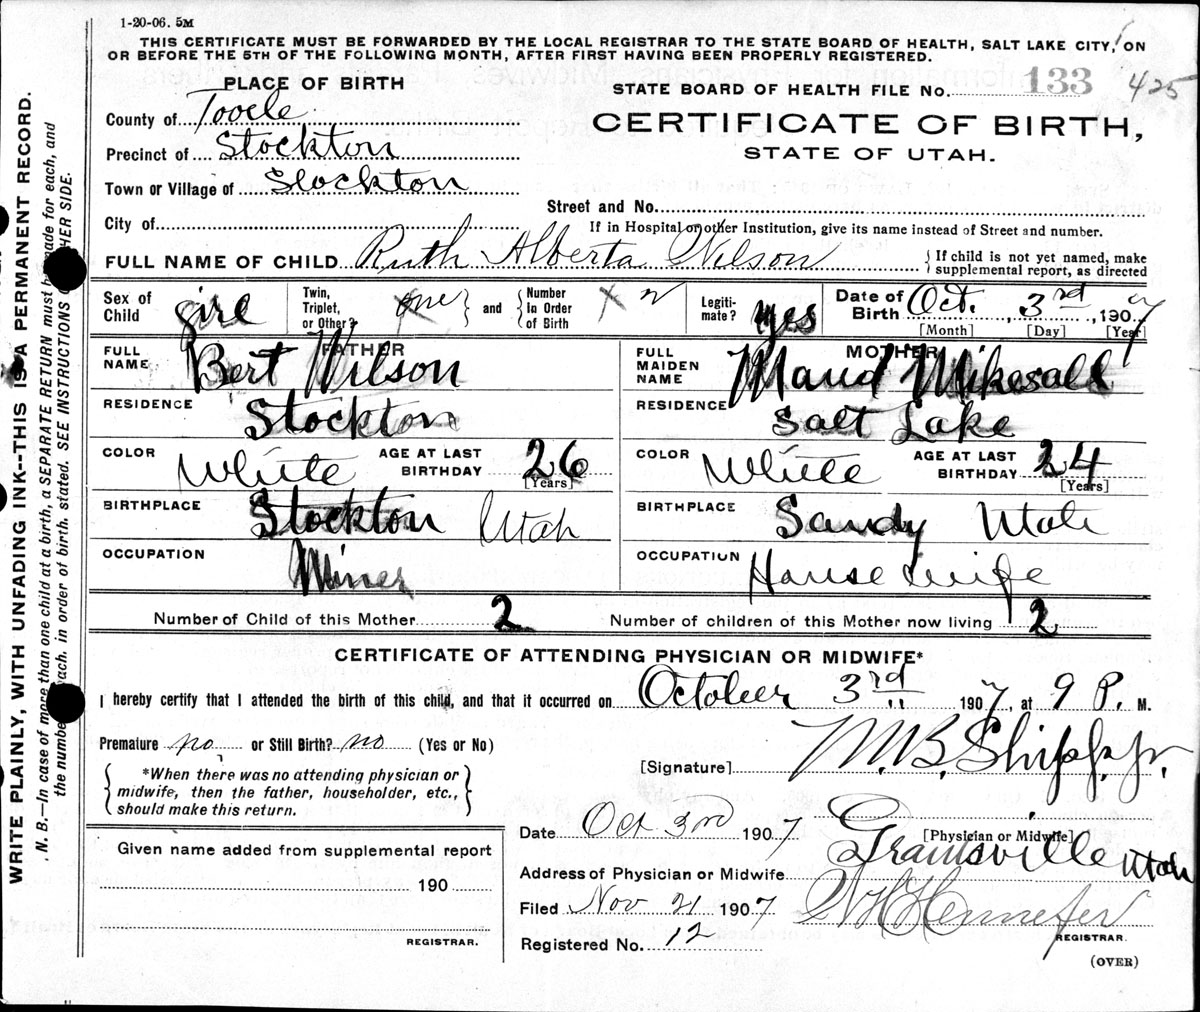 1-20-06. 5M
THIS CERTIFICATE MUST BE FORWARDED BY THE LOCAL REGISTRAR TO THE STATE BOARD OF HEALTH, SALT LAKE CITY, ON
OR BEFORE THE 5TH OF THE FOLLOWING MONTH, AFTER FIRST HAVING BEEN PROPERLY REGISTERED.
PLACE OF BIRTH
STATE BOARD OF HEALTH FILE NO. 133 425
County of Tooele
CERTIFICATE OF BIRTH,
Precinct of Stockton
STATE OF UTAH.
Town or Village of Stockton
Street and No.
City of
If in Hospital or other Institution, give its name instead of Street and number.
FULL NAME OF CHILD Ruth Alberta Wilson
{ If child is not yet named, make supplemental report, as directed
Sex of Child girl
Twin, Triplet, or Other? one } and { Number In Order of Birth
Legiti-mate? yes
Date of Birth Oct. 3rd, 1907
[Month] [Day] [Year]
FATHER
FULL NAME Bert Wilson
RESIDENCE Stockton
COLOR White AGE AT LAST BIRTHDAY 26 [Years]
BIRTHPLACE Stockton Utah
OCCUPATION Miner
MOTHER
FULL MAIDEN NAME Maud Mikesall
RESIDENCE Salt Lake
COLOR White AGE AT LAST BIRTHDAY 24 [Years]
BIRTHPLACE Sandy Utah
OCCUPATION Housewife
Number of Child of this Mother 2 Number of children of this Mother now living 2
CERTIFICATE OF ATTENDING PHYSICIAN OR MIDWIFE*
I hereby certify that I attended the birth of this child, and that it occurred on October 3rd 1907, at 9 P. M.
Premature no or Still Birth? no (Yes or No)
[Signature]
{ *When there was no attending physician or midwife, then the father, householder, etc., should make this return. }
[Physician or Midwife]
Date Oct 3rd 1907
Address of Physician or Midwife Grantsville Utah
Filed Nov 21 1907
Registered No. 12
REGISTRAR.
(OVER)
Given name added from supplemental report
190
REGISTRAR.
WRITE PLAINLY, WITH UNFADING INK--THIS IS A PERMANENT RECORD.
N. B.—In case of more than one child at a birth, a SEPARATE RETURN must be made for each, and
the number each, in order of birth, stated. SEE INSTRUCTIONS OTHER SIDE.